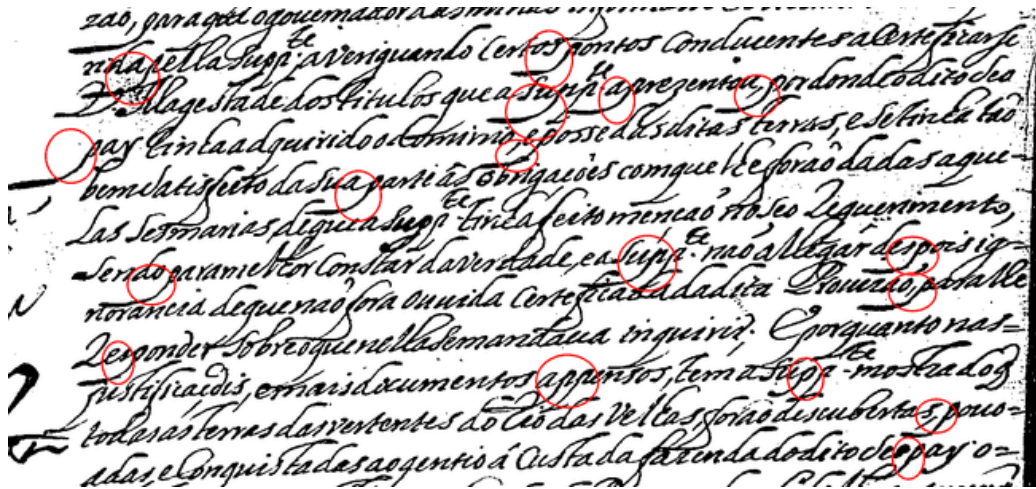 zaõ, para q̃ o governador das minas
nada pella Supp.te averiguando certos pontos conducentes a Certeficarse
D. Magestade dos titulos que a Supp.te aprezentou, por donde o dito seo
pay tinha adquirido o dominio, e posse das ditas terras, e se tinha tão
bem satisfeito da sua parte ás obrigaçoẽs com que lhe foraõ dadas aquel-
las sesmarias de que a Supp.te tinha feito mençaõ no seo Requerimento,
sendo para melhor constar da verdade, e a Supp.te naõ allegár despois ig-
norancia de que naõ fora ouvida Certeficaõ da dita Provizaõ, para lle
Responder sobre o que nella se mandava inquirir; E porquanto nas=
justificaçoẽs, e mais documentos appensos, tem a Supp.te mostrado q̃
todas as terras das vertentes do Rio das Velhas, foraõ discubertas, povo=
adas, e Conquistadas ao gentio á Custa da fazenda do dito seo pay o=